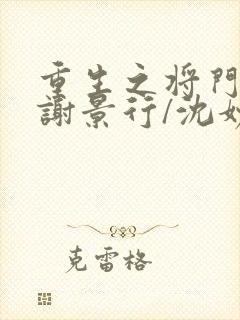 重生之将門
謝景行/沈妙
克雷格